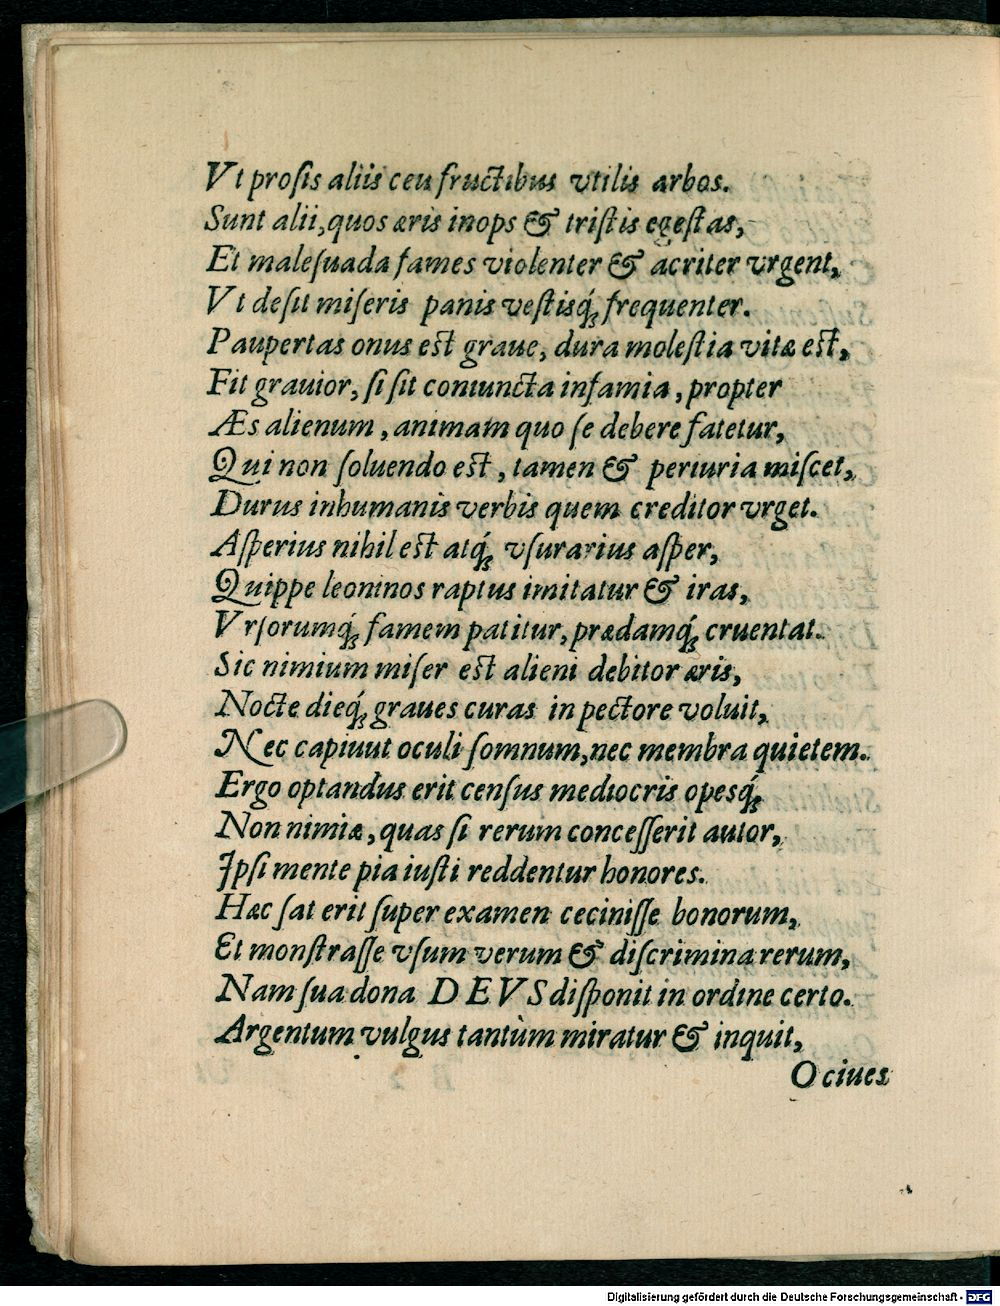 Vt proſis aliis ceu fructibus vtilis arbos.
Sunt alii, quos æris inops & triſtis egeſtas,
Et maleſuada fames violenter & acriter vrgent,
Vt deſit miſeris panis veſtisq́; frequenter.
Paupertas onus est graue, dura moleſtia vitæ est,
Fit grauior, ſi ſit coniuncta infamia, propter
Æs alienum, animam quo ſe debere fatetur,
Qui non ſoluendo est, tamen & periuria miſcet,
Durus inhumanis verbis quem creditor vrget.
Aſperius nihil est atq́; vſurarius aſper,
Quippe leoninos raptus imitatur & iras,
Vrſorumq́; famem patitur, prædamq́; cruentat.
Sic nimium miſer est alieni debitor æris,
Nocte dieq́; graues curas in pectore voluit,
Nec capiuut oculi ſomnum, nec membra quietem.
Ergo optandus erit cenſus mediocris opesq́;
Non nimiæ, quas ſi rerum conceſſerit autor,
Ipſi mente pia iuſti reddentur honores.
Hæc ſat erit ſuper examen ceciniſſe bonorum,
Et monſtraſſe vſum verum & diſcrimina rerum,
Nam ſua dona DEVS diſponit in ordine certo.
Argentum vulgus tantùm miratur & inquit,
O ciues
Digitalisierung gefördert durch die Deutsche Forschungsgemeinschaft - DFG